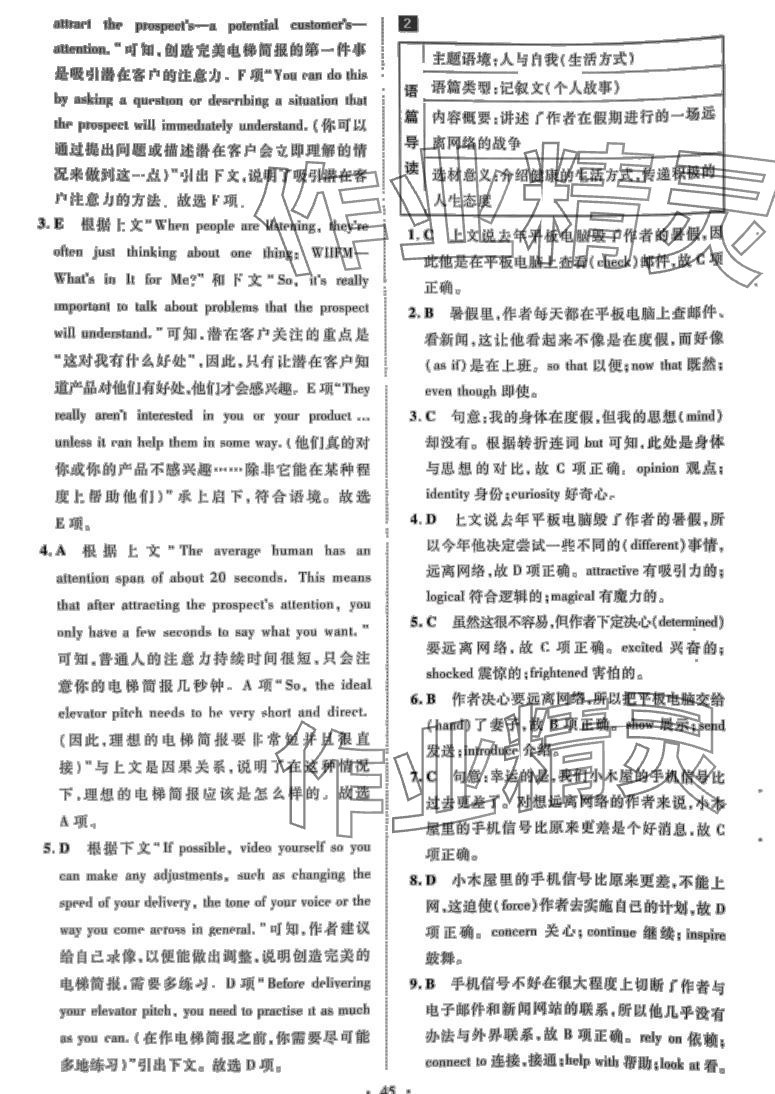 attract the prospect's—a potential customer's—
attention."可知,创造完美电梯简报的第一件事
是吸引潜在客户的注意力. F项"You can do this
by asking a question or describing a situation that
the prospect will immediately understand.(你可以
通过提出问题或描述潜在客户会立即理解的情
况来做到这一点)"引出下文,说明了吸引潜在客
户注意力的方法. 故选F项.
3. E 根据上文"When people are listening, they're
often just thinking about one thing; WIIFM—
What's in It for Me?"和下文"So, it's really
important to talk about problems that the prospect
will understand."可知,潜在客户关注的重点是
"这对我有什么好处",因此,只有让潜在客户知
道产品对他们有好处,他们才会感兴趣. E项"They
really aren't interested in you or your product…
unless it can help them in some way.(他们真的对
你或你的产品不感兴趣……除非它能在某种程
度上帮助他们)"承上启下,符合语境。故选
E项。
4. A 根据上文"The average human has an
attention span of about 20 seconds. This means
that after attracting the prospect's attention, you
only have a few seconds to say what you want."
可知,普通人的注意力持续时间很短,只会注
意你的电梯简报几秒钟. A项"So, the ideal
elevator pitch needs to be very short and direct.
(因此,理想的电梯简报要非常短并且很直
接)"与上文是因果关系,说明了在这种情况
下,理想的电梯简报应该是怎么样的。故选
A项。
5. D 根据下文"If possible, video yourself so you
can make any adjustments, such as changing the
speed of your delivery, the tone of your voice or the
way you come across in general."可知,作者建议
给自己录像,以便能做出调整,说明创造完美的
电梯简报,需要多练习. D项"Before delivering
your elevator pitch, you need to practise it as much
as you can.(在作电梯简报之前,你需要尽可能
多地练习)"引出下文。故选D项。
2
语篇导读
主题语境:人与自我(生活方式)
语篇类型:记叙文(个人故事)
内容概要:讲述了作者在假期进行的一场远
离网络的战争
选材意义:介绍健康的生活方式,传递积极的
人生态度
1. C 上文说去年平板电脑毁了作者的暑假,因
此他是在平板电脑上查看(check)邮件,故C项
正确。
2. B 暑假里,作者每天都在平板电脑上查邮件、
看新闻,这让他看起来不像是在度假,而好像
(as if)是在上班。so that 以便;now that 既然;
even though 即使。
3. C 句意:我的身体在度假,但我的思想(mind)
却没有。根据转折连词 but 可知,此处是身体
与思想的对比,故C项正确。opinion 观点;
identity 身份;curiosity 好奇心。
4. D 上文说去年平板电脑毁了作者的暑假,所
以今年他决定尝试一些不同的(different)事情,
远离网络,故D项正确。attractive 有吸引力的;
logical 符合逻辑的;magical 有魔力的。
5. C 虽然这很不容易,但作者下定决心(determined)
要远离网络,故C项正确。excited 兴奋的;
shocked 震惊的;frightened 害怕的。
6. B 作者决心要远离网络,所以把平板电脑交给
(hand)了妻子,故B项正确。show 展示;send
发送;introduce 介绍。
7. C 句意:幸运的是,我们小木屋的手机信号比
过去更差了。对想远离网络的作者来说,小木
屋里的手机信号比原来更差是个好消息,故C
项正确。
8. D 小木屋里的手机信号比原来更差,不能上
网,这迫使(force)作者去实施自己的计划,故D
项正确。concern 关心;continue 继续;inspire
鼓舞。
9. B 手机信号不好在很大程度上切断了作者与
电子邮件和新闻网站的联系,所以他几乎没有
办法与外界联系,故B项正确。rely on 依赖;
connect to 连接,接通;help with 帮助;look at 看。
作业精灵
作业精灵
45